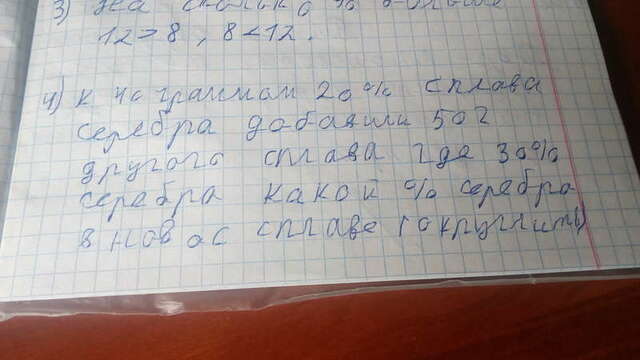 3) На сколько % больше
12 > 8 , 8 < 12 .
4) к 40 граммам 20% сплава
серебра добавили 50г
другого сплава где 30%
серебра какой % серебра
в новос сплаве (округлить)